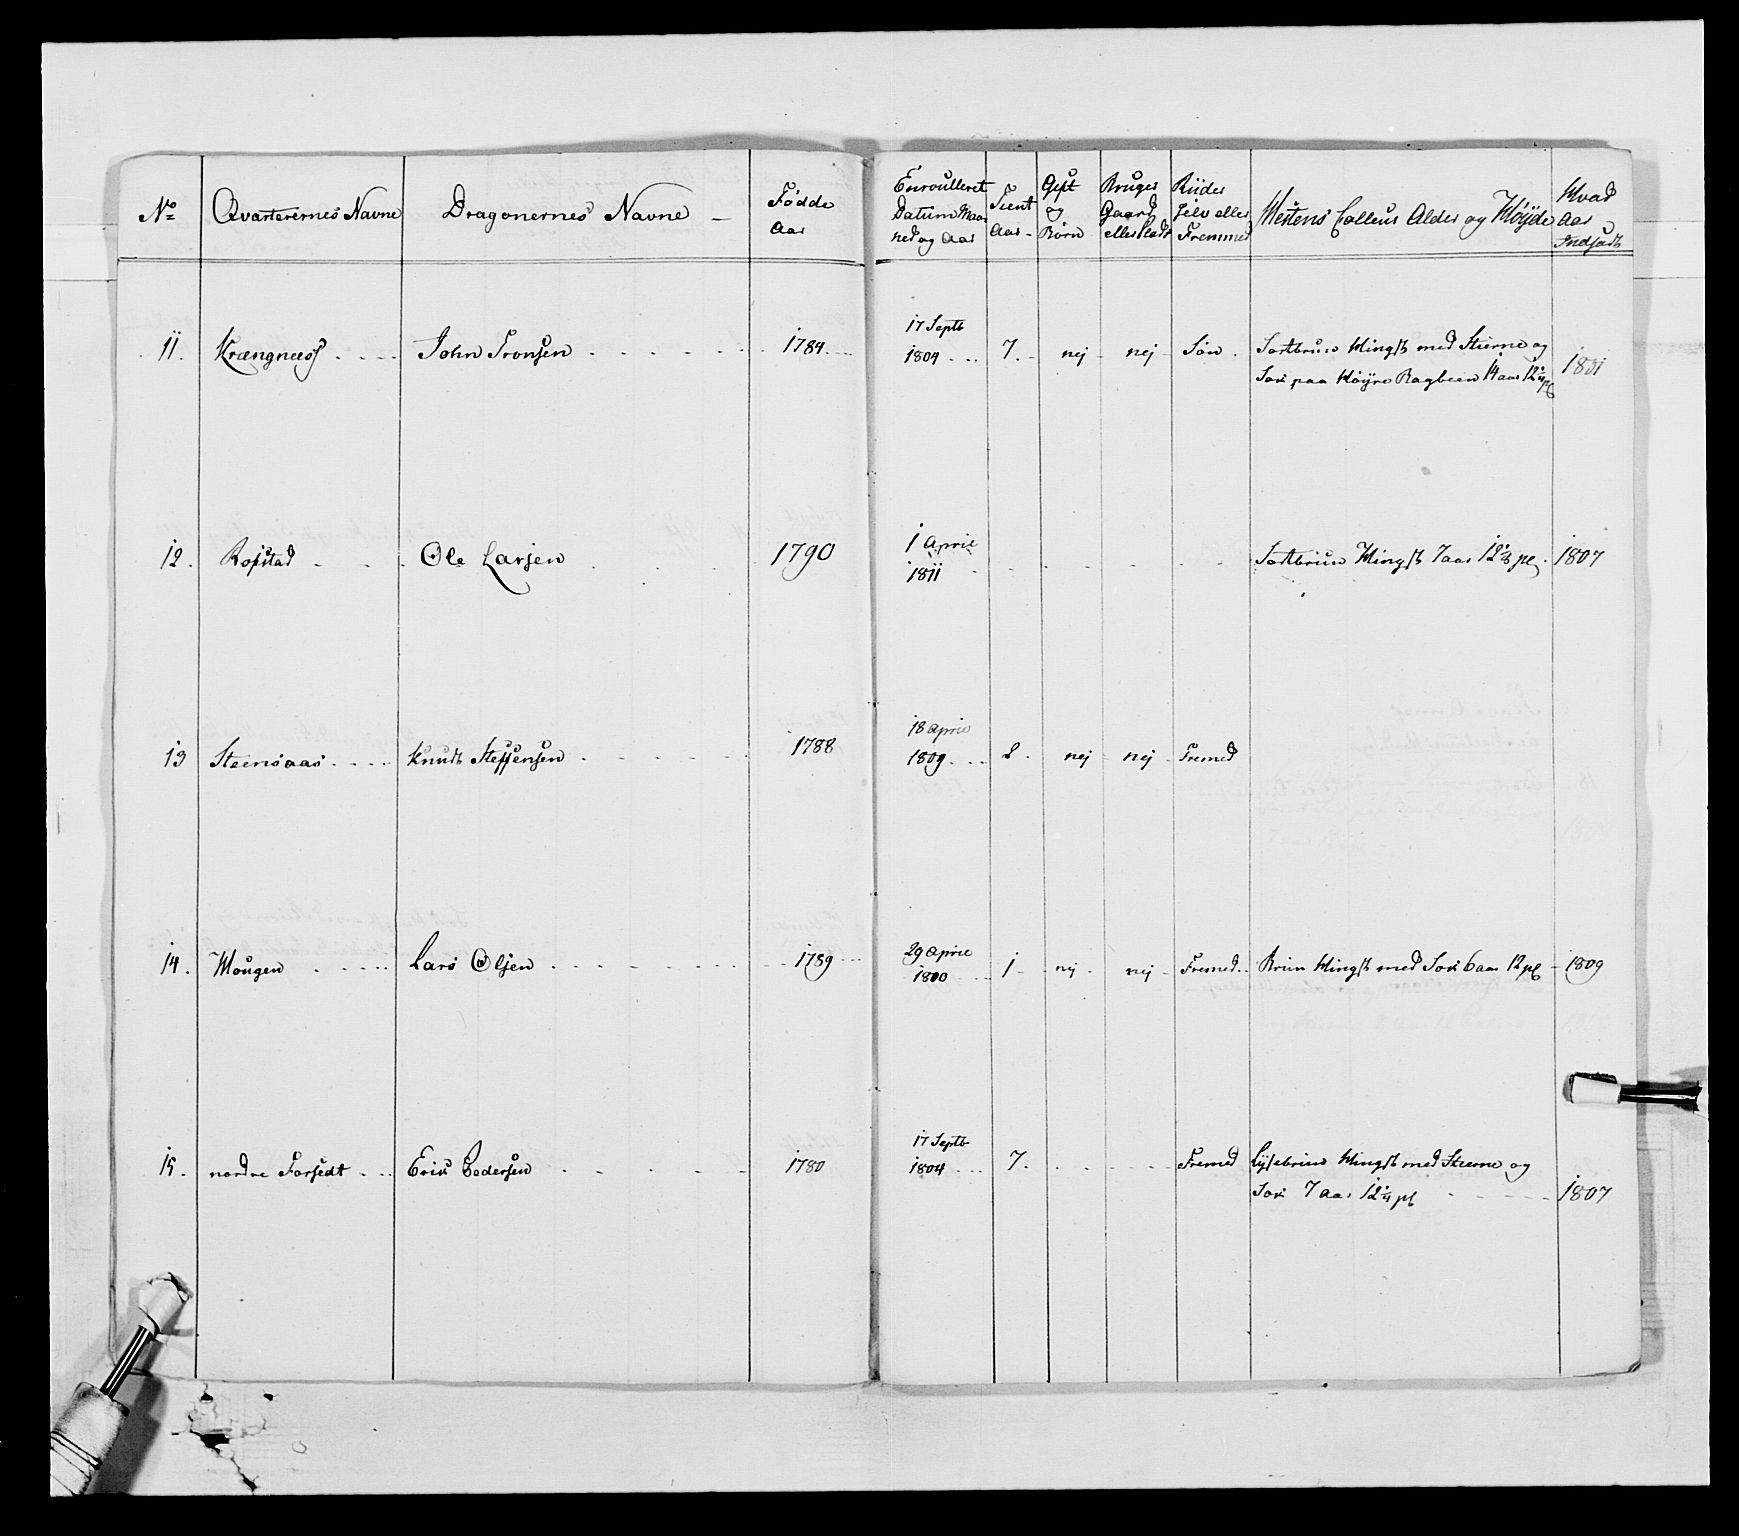 No Qvarterernes Navne Dragonernes Navne - Fødde Aar Enroulleret Datum Maa ned og Aar Tient Aar - Gift og Børn Bruger Gaard eller Plads Riider Selv eller Fremmed Hestens Colleur Alder og Høÿde Hvad Aar Indsadt
11. Krængness . . . . John Tronsen . . . . . . . 1784 . . . 17 Septb 1804 . . . 7. - nej - nej - Søn . Sortbrun Hingst med Stierne og
Sok paa Høÿre Bagbeen 14 aar 12 1/4 pl 1801
12. Rofstad . . . Ole Larsen . . . . 1790 1 April 1811 . . . . . . Sortbrun Hingst 7 aar 12 1/2 pl . 1807
13 Steensaas . . . . Knudt Steffensen . . . . . . . 1788 18 April 1809 . . . 2 . nej - nej - Fremed
14. Hougen . . . . . Lars Olsen . . . . . . . . . 1789 . . . 29 April 1810 . . . 1 - nej . nej - Fremed . . Brun Hingst med Sok 6 aar 12 pl - 1809
15. nordre Forsedt . . . Erik Pedersen . . . . . . 1780 17 Septb 1804 . . . 7. . . . . . Fremed Lÿsebrun Hingst med Stierne og
Sok 7 aar 12 1/4 pl . . . . . 1807